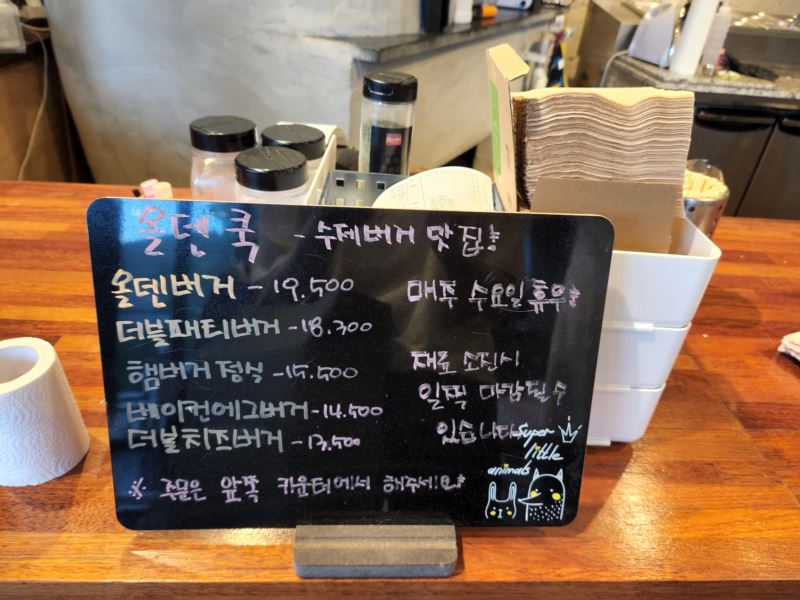 올덴쿡 - 수제버거 맛집!
올덴버거 - 19.500
더블패티버거 - 18.300
햄버거 정식 - 15.500
베이컨에그버거 - 14.500
더블치즈버거 - 13.500
매주 수요일 휴무!
재료 소진시
일찍 마감될 수
있습니다
※ 주문은 앞쪽 카운터에서 해주세요!
Super
little
animals